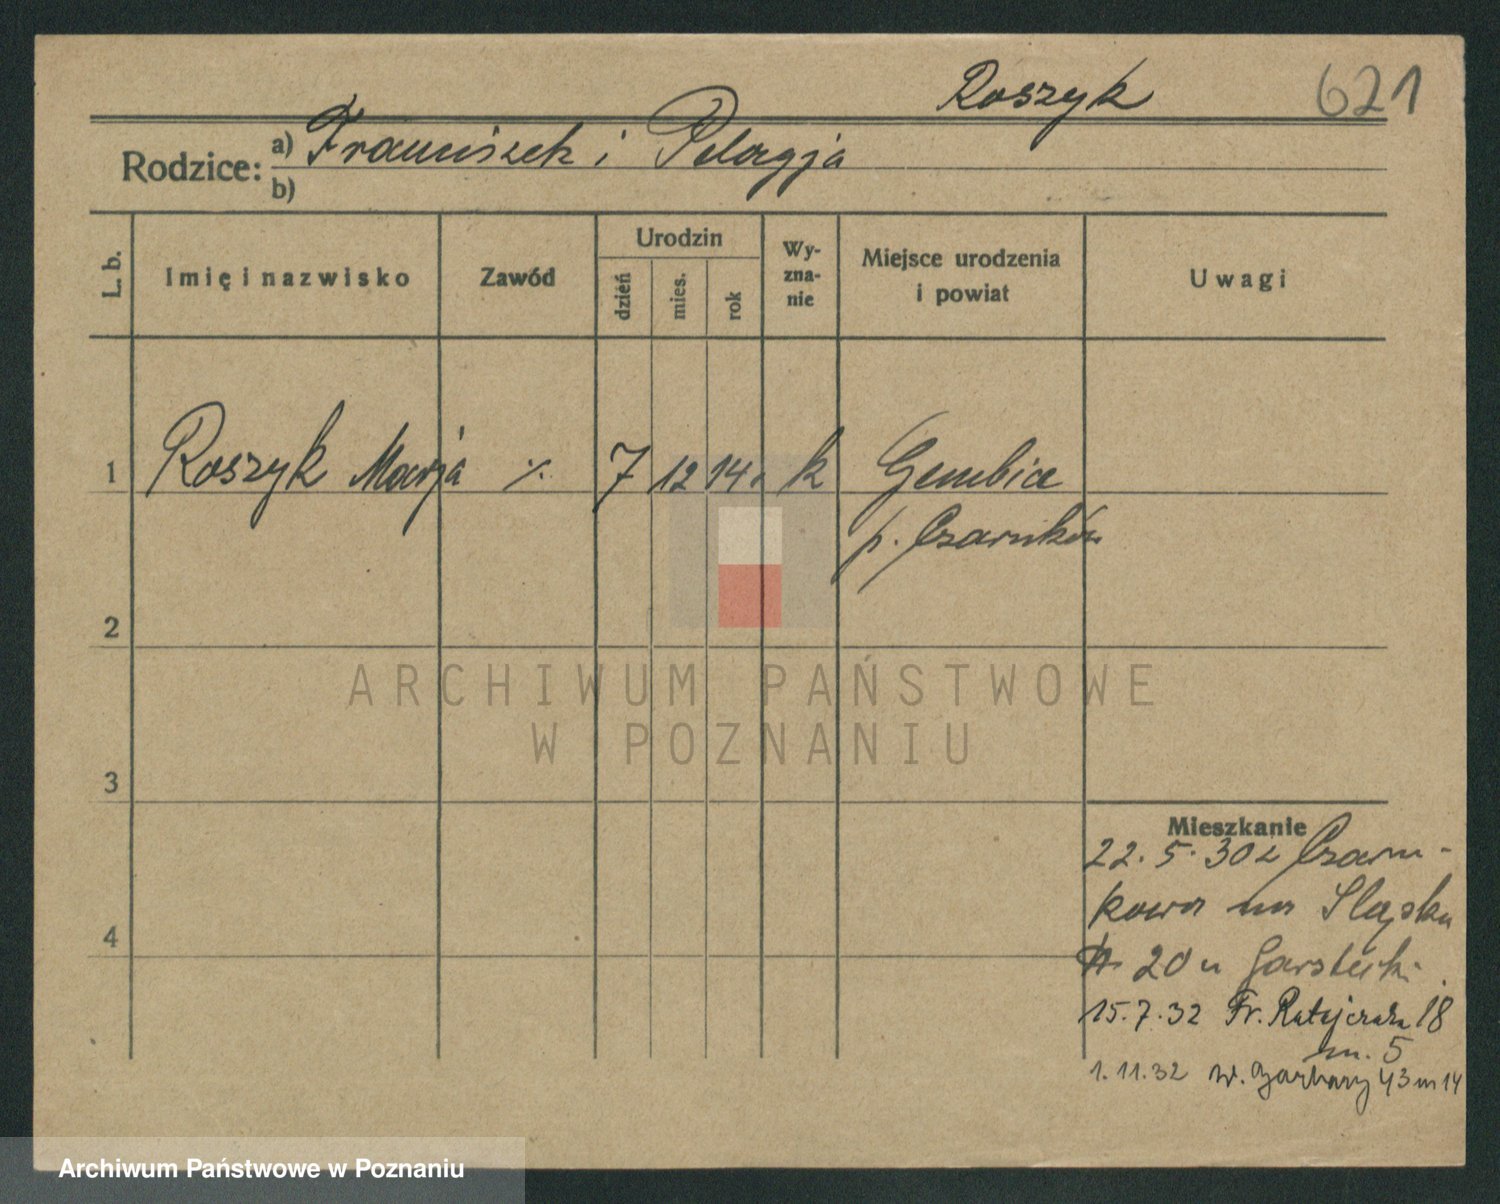 Roszyk 621
Rodzice: a) Franciszek i Pelagja
b)
L. b. Imię i nazwisko Zawód Urodzin dzień mies. rok Wyznanie Miejsce urodzenia i powiat Uwagi
1 Roszyk Marja ·/. 7 12 14. k Gembice
p. Czarnków
2
ARCHIWUM PAŃSTWOWE
W POZNANIU
3
Mieszkanie
22.5.30 z Czarn-
kowa na Śląska
20 u Garstecki.
15.7.32 Fr. Ratajczaka 18
m. 5
4
1.11.32 W. Garbary 43 m 14
Archiwum Państwowe w Poznaniu